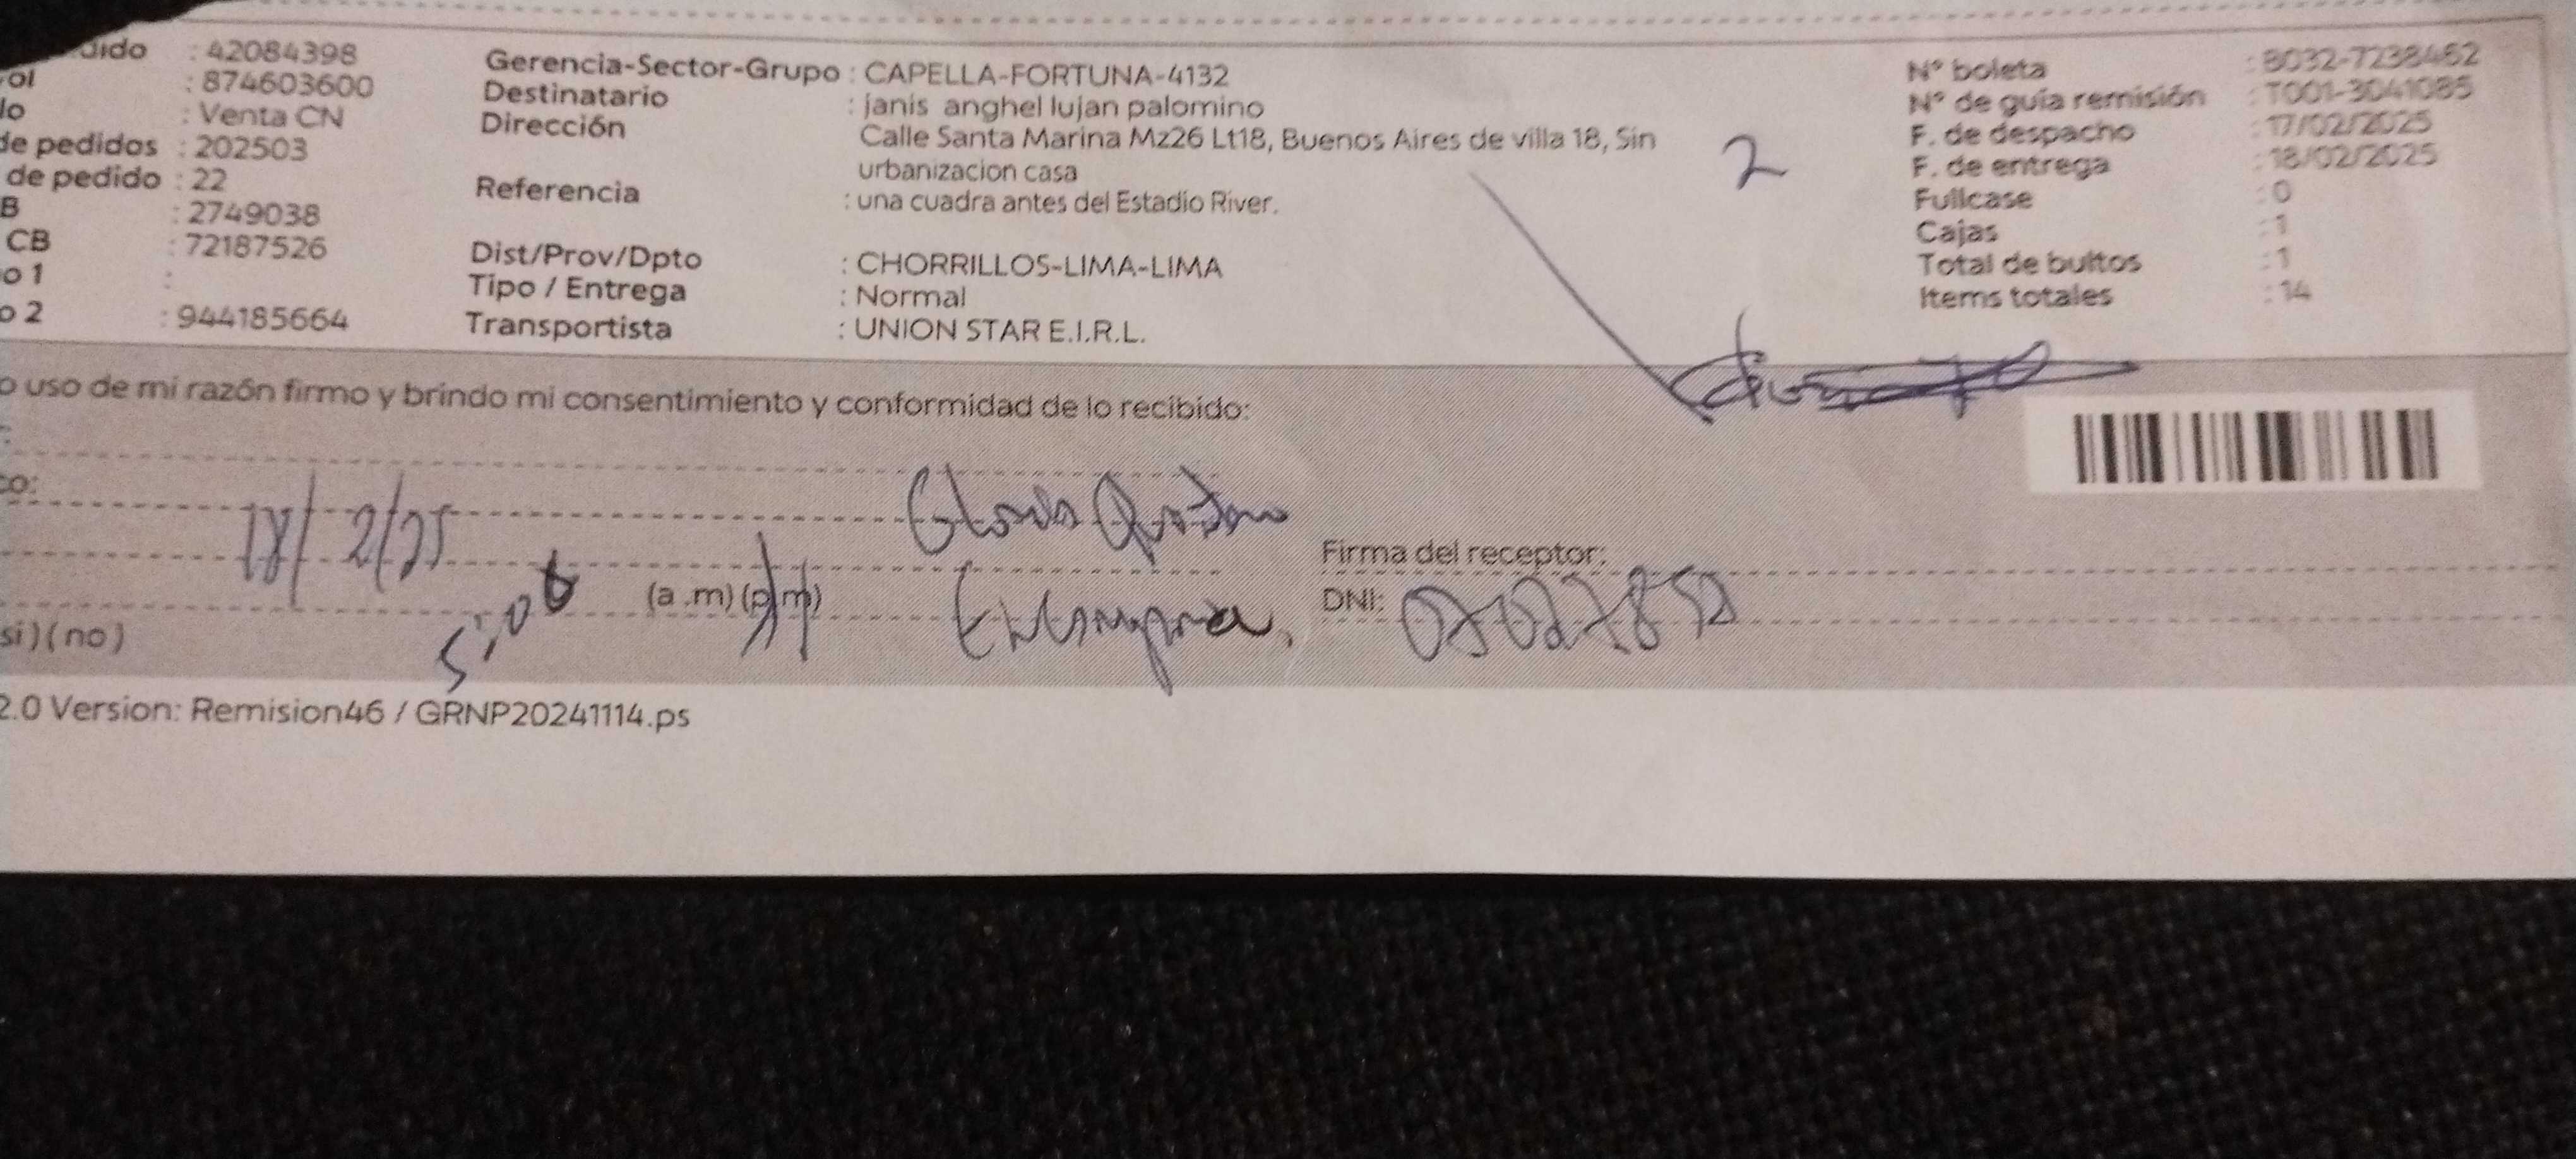 dido : 42084398
rol : 874603600
lo : Venta CN
de pedidos : 202503
de pedido : 22
B : 2749038
CB : 72187526
o 1 :
o 2 : 944185664
Gerencia-Sector-Grupo : CAPELLA-FORTUNA-4132
Destinatario : janis anghel lujan palomino
Dirección Calle Santa Marina Mz26 Lt18, Buenos Aires de villa 18, Sin
urbanizacion casa
Referencia : una cuadra antes del Estadio River.
Dist/Prov/Dpto : CHORRILLOS-LIMA-LIMA
Tipo / Entrega : Normal
Transportista : UNION STAR E.I.R.L.
2
N° boleta : B032-7238462
N° de guía remisión : T001-3041085
F. de despacho : 17/02/2025
F. de entrega : 18/02/2025
Fullcase : 0
Cajas : 1
Total de bultos : 1
Items totales : 14
o uso de mi razón firmo y brindo mi consentimiento y conformidad de lo recibido:
co:
18/2/25
5:00 (a .m) (p.m)
Gloria
Firma del receptor:
DNI:
si ) ( no )
2.0 Version: Remision46 / GRNP20241114.ps